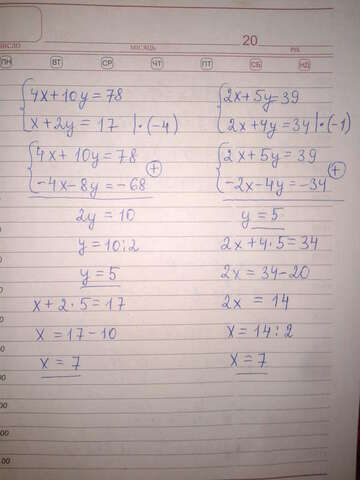 ЧИСЛО МІСЯЦЬ 20 РІК
ПН ВТ СР ЧТ ПТ СБ НД
4x+10y=78
x+2y=17 |·(-4)
4x+10y=78
-4x-8y=-68
+
2y=10
y=10:2
y=5
x+2·5=17
x=17-10
x=7
2x+5y=39
2x+4y=34 |·(-1)
2x+5y=39
-2x-4y=-34
+
y=5
2x+4·5=34
2x=34-20
2x=14
x=14:2
x=7